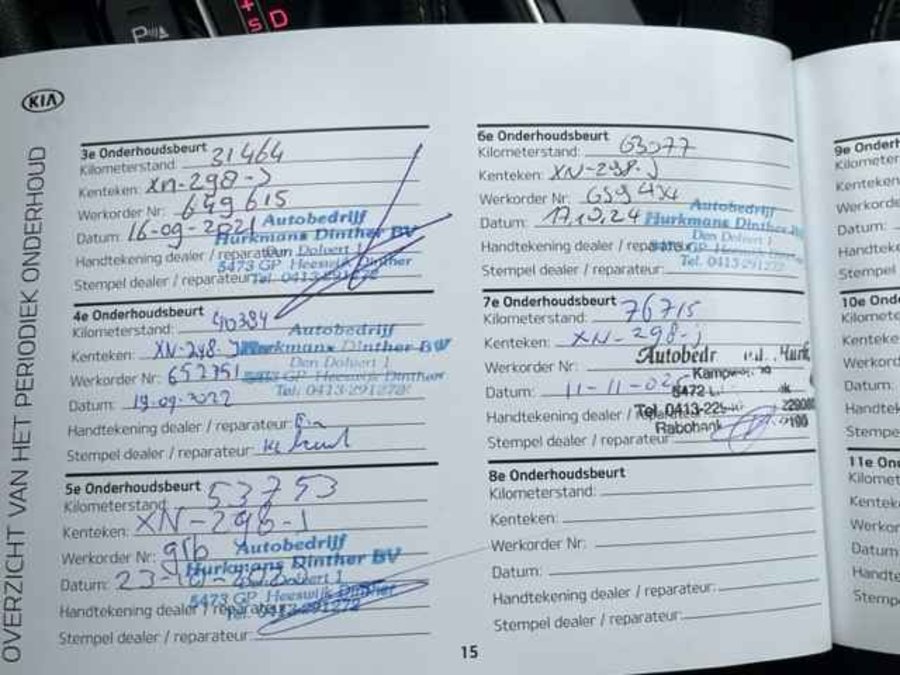 P
S
D
KIA
OVERZICHT VAN HET PERIODIEK ONDERHOUD
3e Onderhoudsbeurt
Kilometerstand: 31464
Kenteken: XN-298-J
Werkorder Nr: 649615
Datum: 16-09-2021
Autobedrijf
Hurkmans Dinther BV
Den Dolvert 1
5473 GP Heeswijk Dinther
Tel. 0413-291272
Handtekening dealer / reparateur:
Stempel dealer / reparateur:
4e Onderhoudsbeurt
Kilometerstand: 40394
Kenteken: XN-298-J
Werkorder Nr: 652751
Datum: 19-09-2022
Autobedrijf
Hurkmans Dinther BV
Den Dolvert 1
5473 GP Heeswijk Dinther
Tel. 0413-291272
Handtekening dealer / reparateur:
Stempel dealer / reparateur:
5e Onderhoudsbeurt
Kilometerstand: 53753
Kenteken: XN-298-J
Werkorder Nr:
Datum: 23-10-
Autobedrijf
Hurkmans Dinther BV
Den Dolvert 1
5473 GP Heeswijk Dinther
Tel. 0413-291272
Handtekening dealer / reparateur:
Stempel dealer / reparateur:
6e Onderhoudsbeurt
Kilometerstand: 63077
Kenteken: XN-298-J
Werkorder Nr:
Datum: 17.10.24
Autobedrijf
Hurkmans Dinther BV
Den Dolvert 1
5473 GP Heeswijk Dinther
Tel. 0413-291272
Handtekening dealer / reparateur:
Stempel dealer / reparateur:
7e Onderhoudsbeurt
Kilometerstand: 76715
Kenteken: XN-298-J
Werkorder Nr:
Datum: 11-11-02
Autobedr
5472
Tel. 0413-229
Rabobank
Handtekening dealer / reparateur:
Stempel dealer / reparateur:
8e Onderhoudsbeurt
Kilometerstand:
Kenteken:
Werkorder Nr:
Datum:
Handtekening dealer / reparateur:
Stempel dealer / reparateur:
15
9e Onderh
Kilometer
Kenteken
Werkorde
Datum:
Handteke
Stempel
10e Ond
Kilomete
Kenteke
Werkord
Datum:
Handtek
Stempe
11e On
Kilomet
Kentek
Werkor
Datum
Handte
Stemp